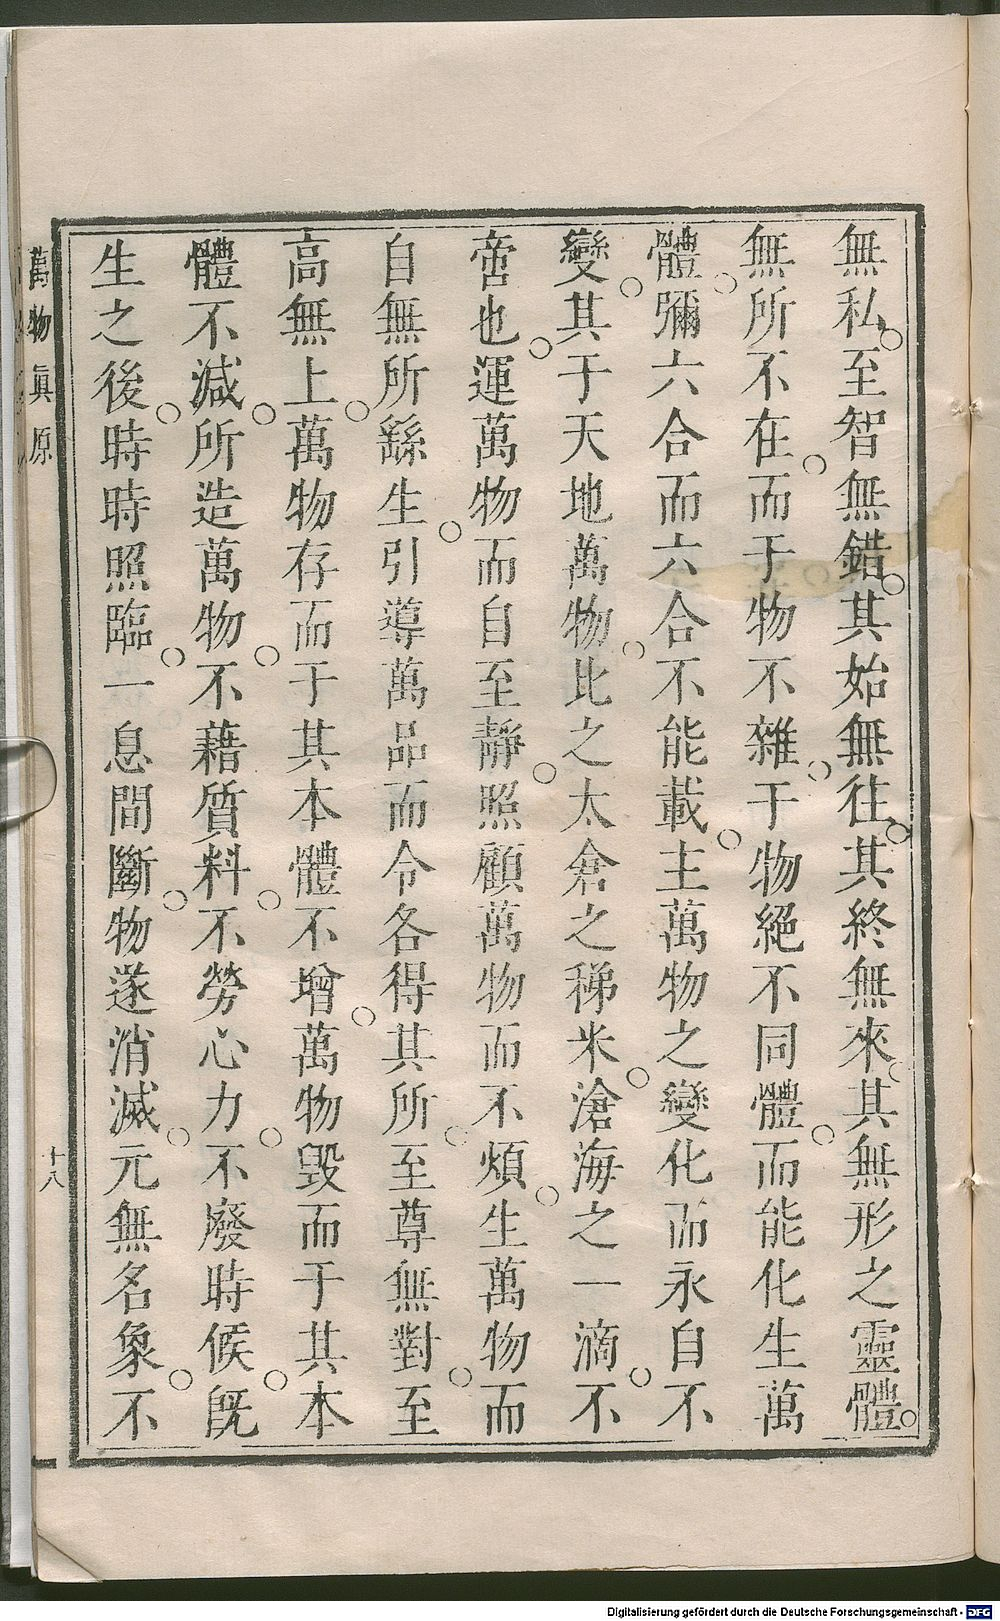 無私。至智無錯。其始無往。其終無來。其無形之靈體。
無所不在。而于物不雜。于物絕不同體。而能化生萬
體。彌六合而六合不能載。主萬物之變化而永自不
變。其于天地萬物。比之太倉之稊米。滄海之一滴。不
啻也。運萬物而自至靜。照顧萬物而不煩。生萬物而
自無所繇生。引導萬品而令各得其所。至尊無對。至
高無上。萬物存而于其本體不增。萬物毀而于其本
體不減。所造萬物。不藉質料。不勞心力。不廢時候。旣
生之後。時時照臨。一息間斷。物遂消滅。元無名象。不
萬物眞原
十八
Digitalisierung gefördert durch die Deutsche Forschungsgemeinschaft - DFG